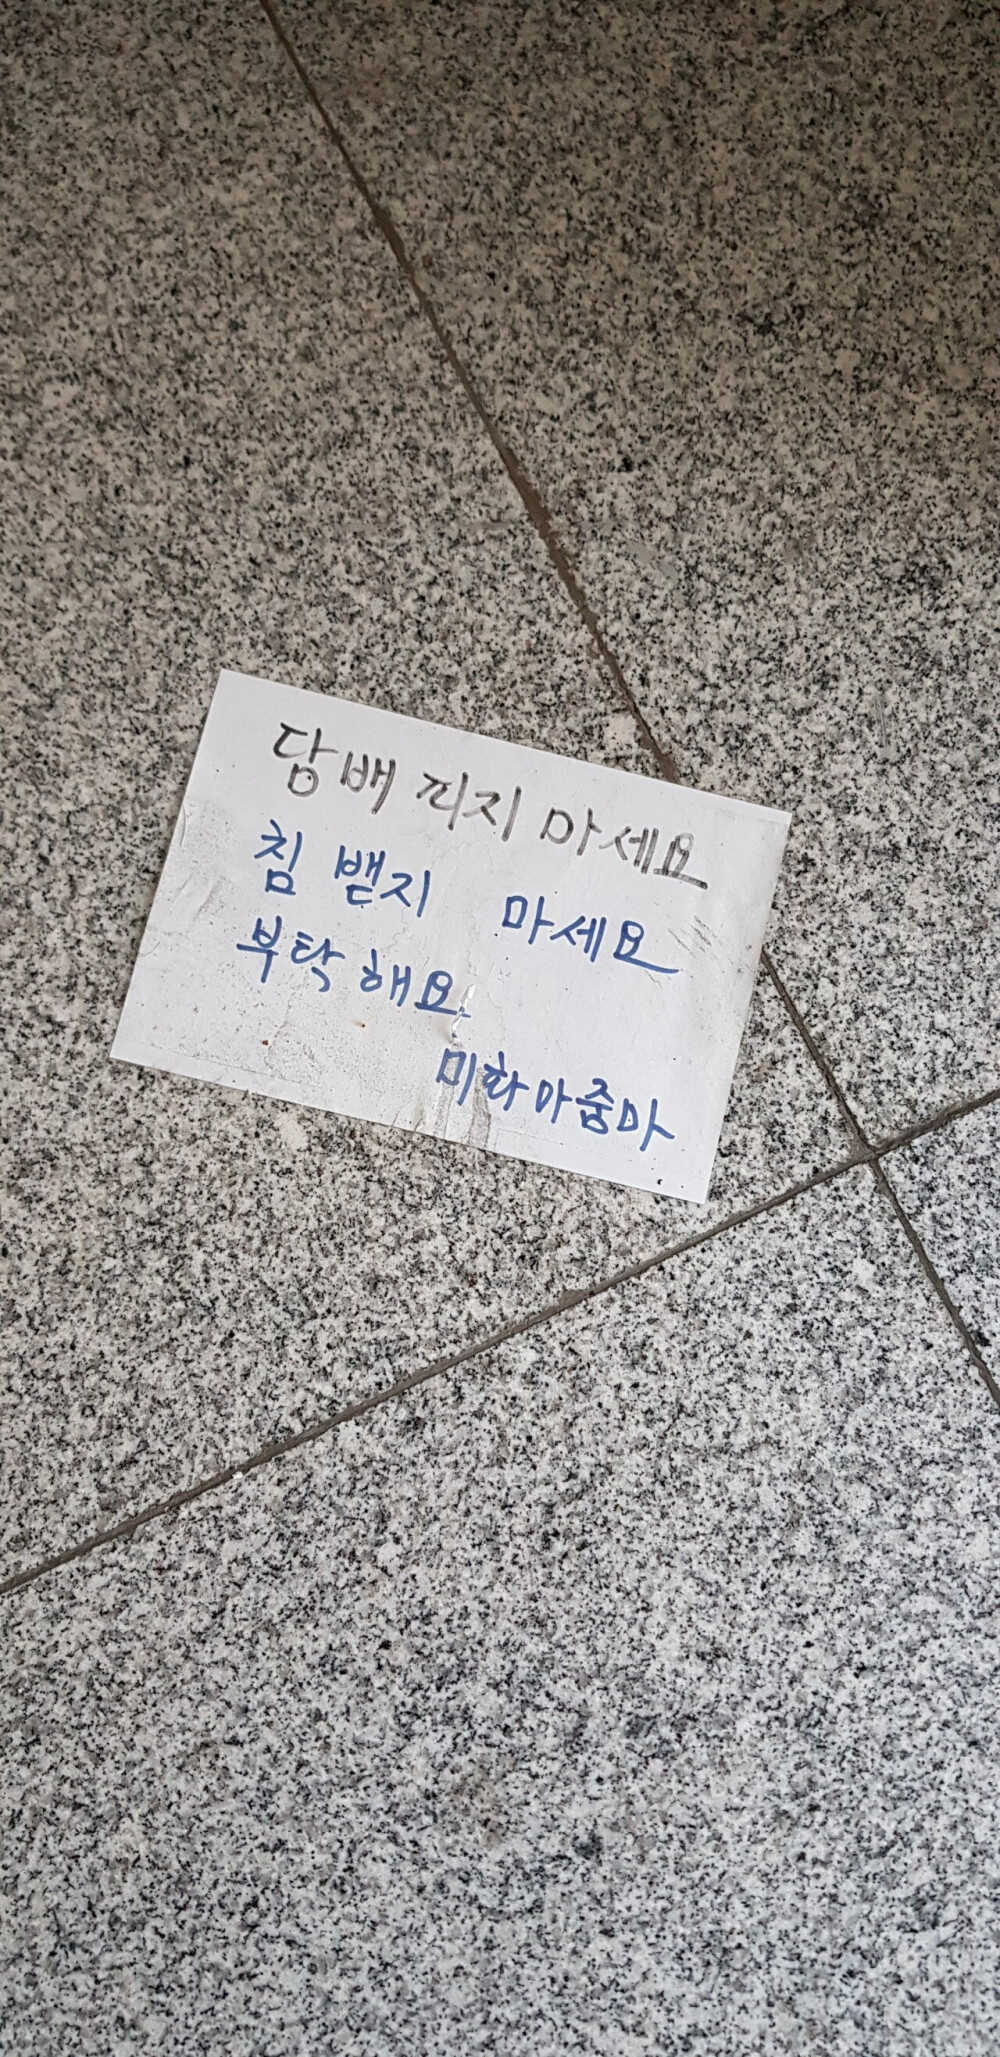 담배 피지 마세요
침 뱉지 마세요
부탁해요
미화아줌마